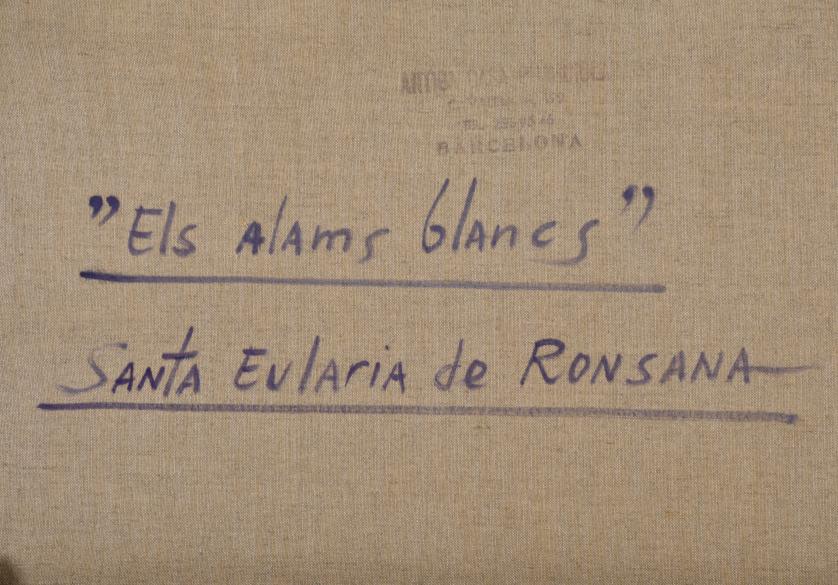 BARCELONA
"Els alams blancs"
SANTA EulAriA de RONSANA